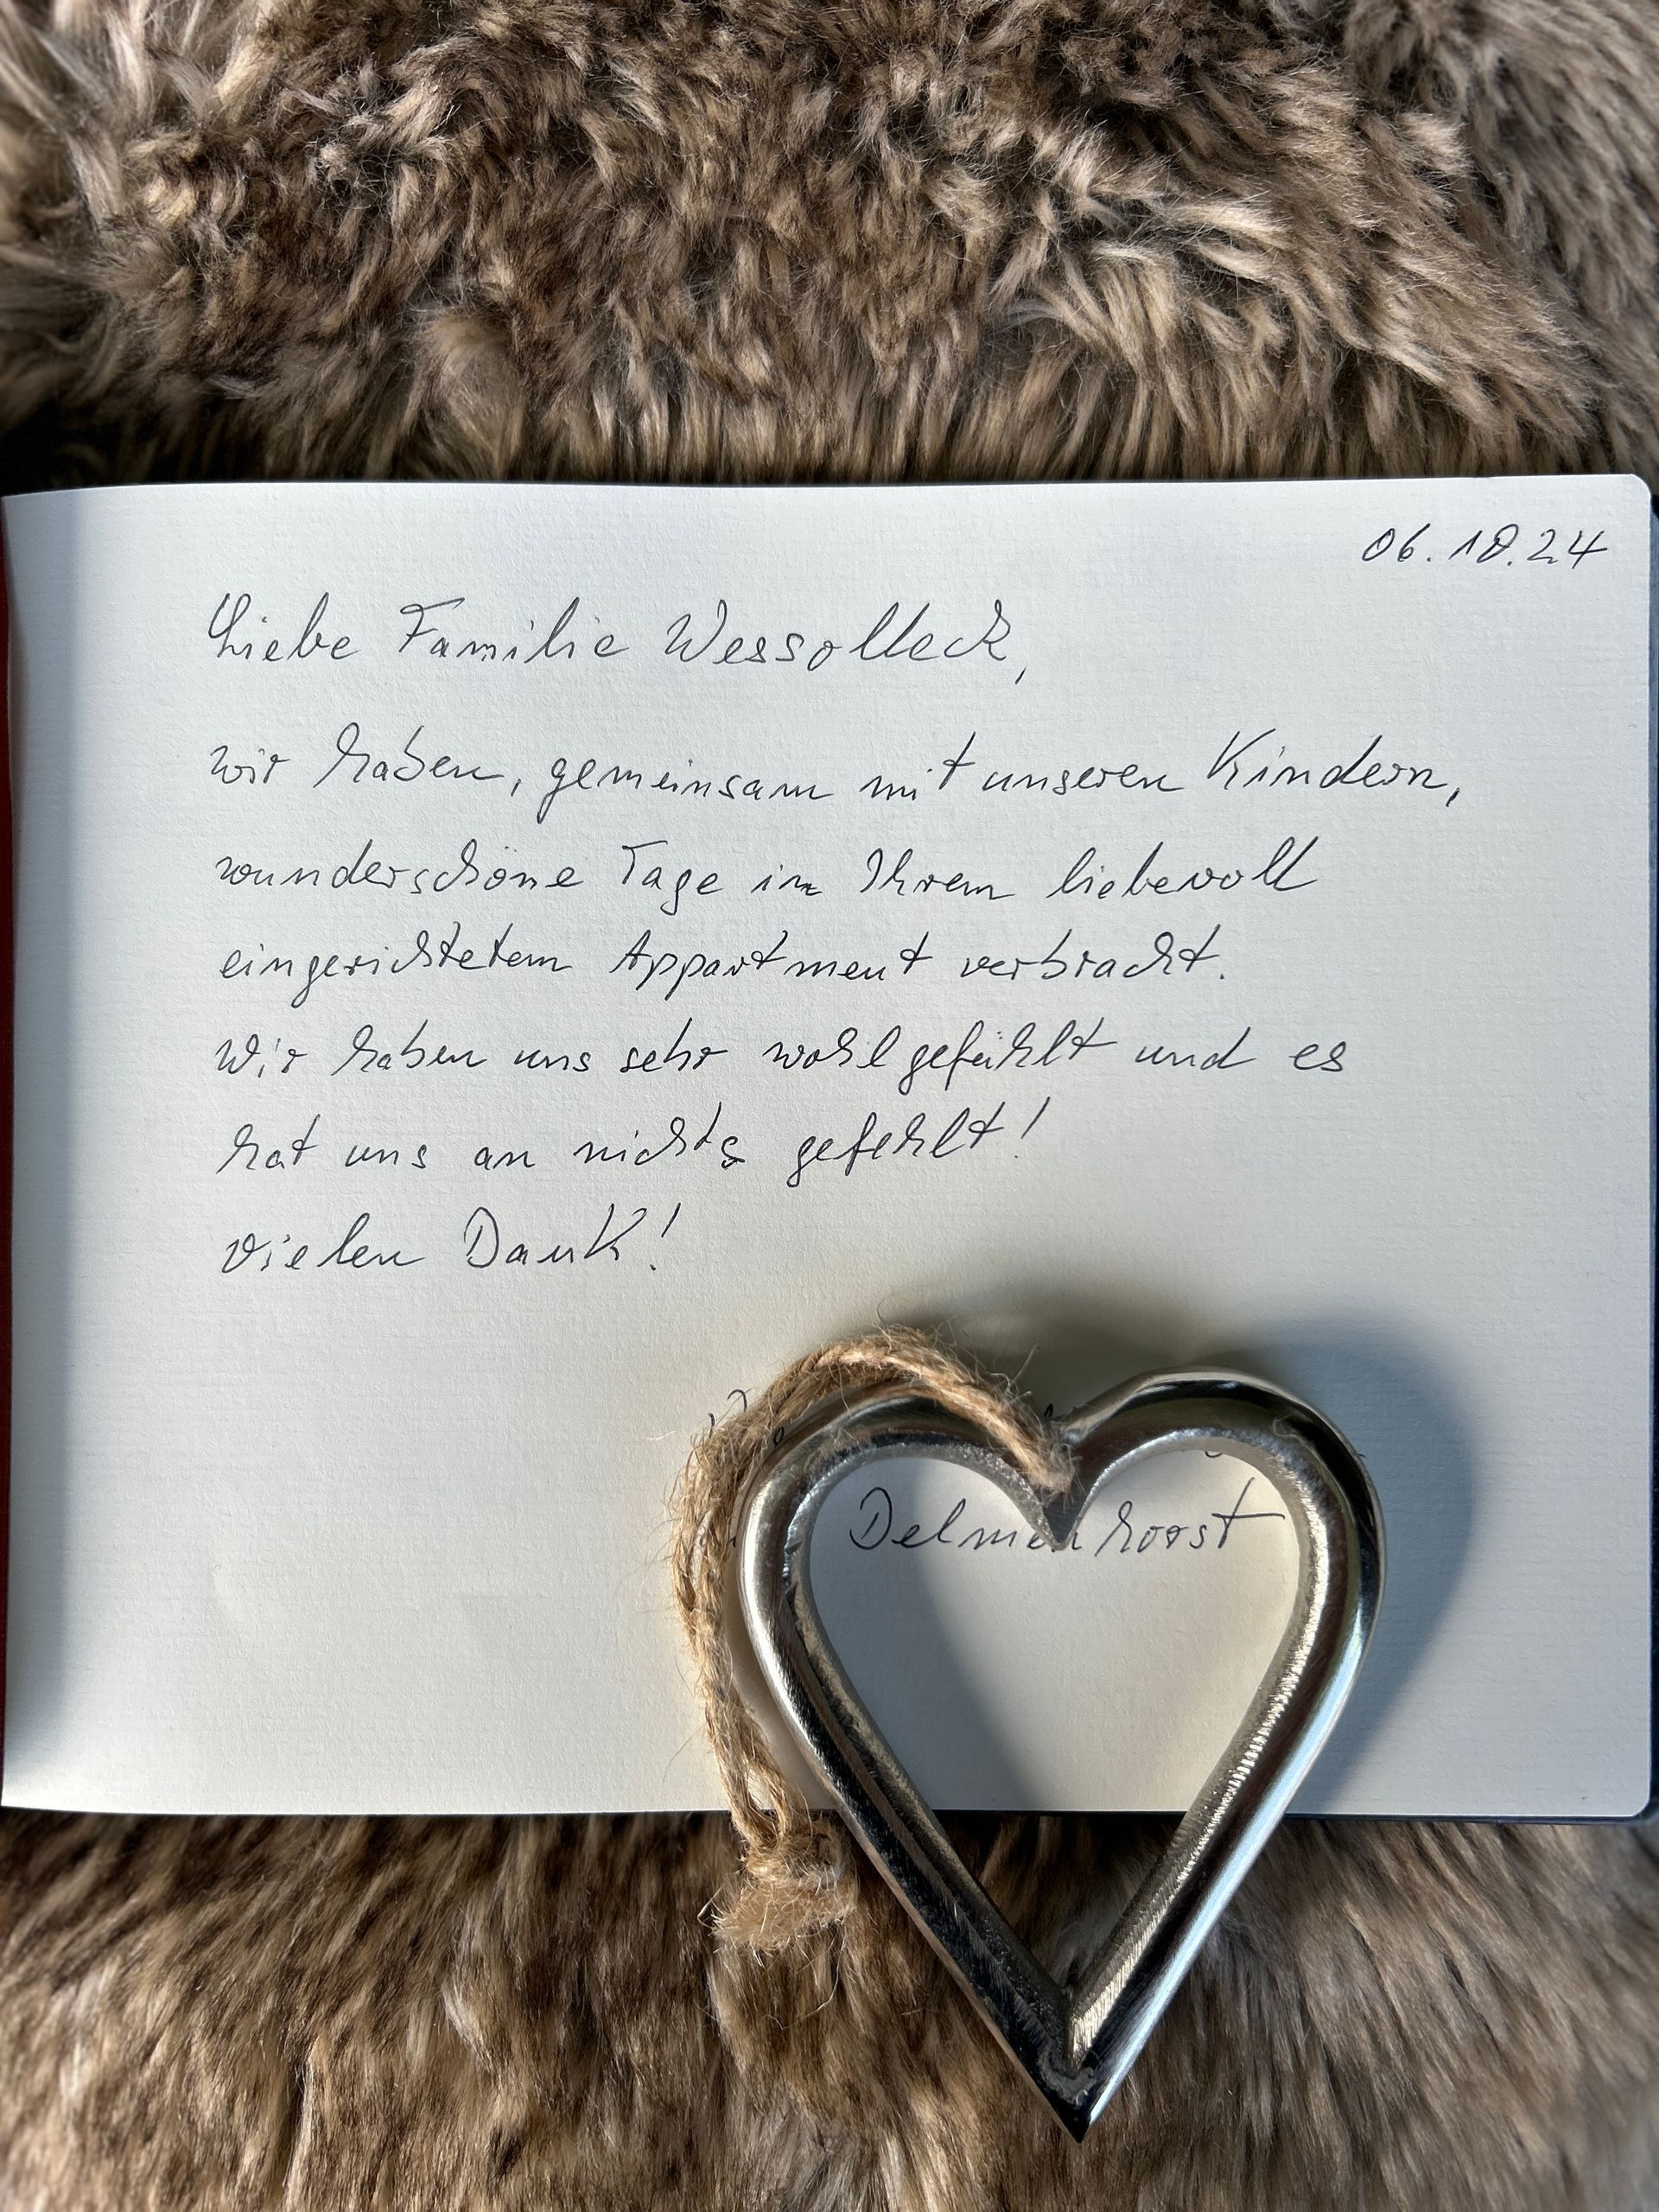 06.10.24
Liebe Familie Wessolleck,
wir haben, gemeinsam mit unseren Kindern,
wunderschöne Tage in Ihrem liebevoll
eingerichtetem Appartment verbracht.
Wir haben uns sehr wohl gefühlt und es
hat uns an nichts gefehlt!
Vielen Dank!
Delmenhorst